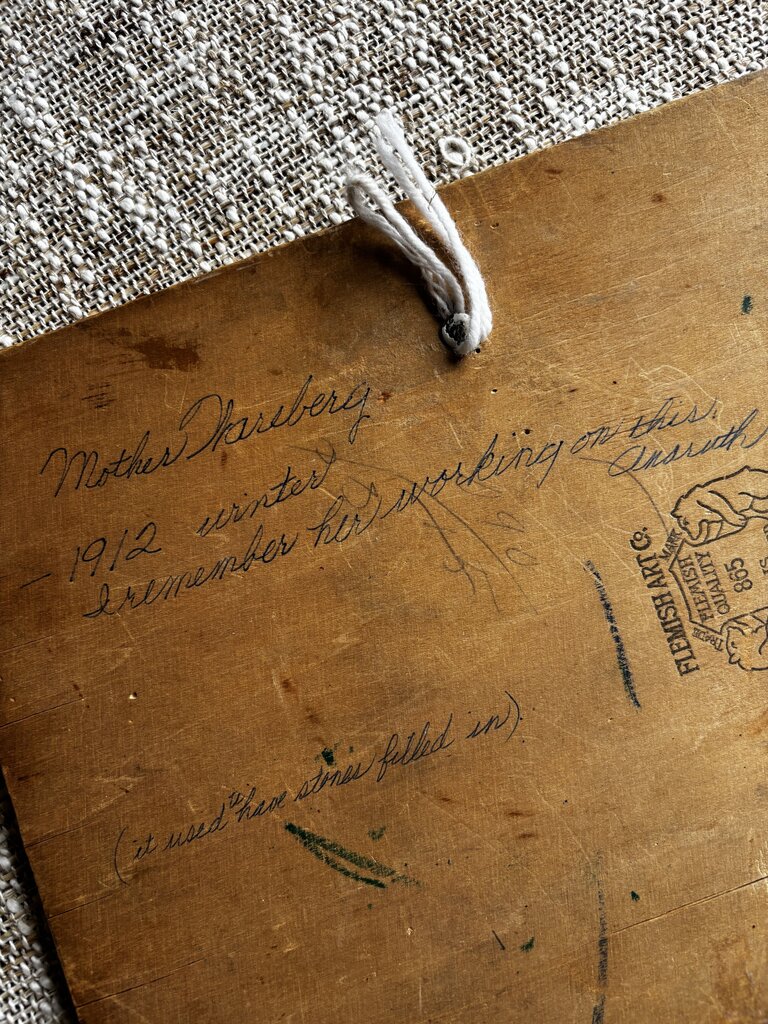 Mother
- 1912 winter
I remember her working on this.
Anaruth
FLEMISH ART Co.
TRADE MARK
FLEMISH
QUALITY
865
(it used to have stones filled in)